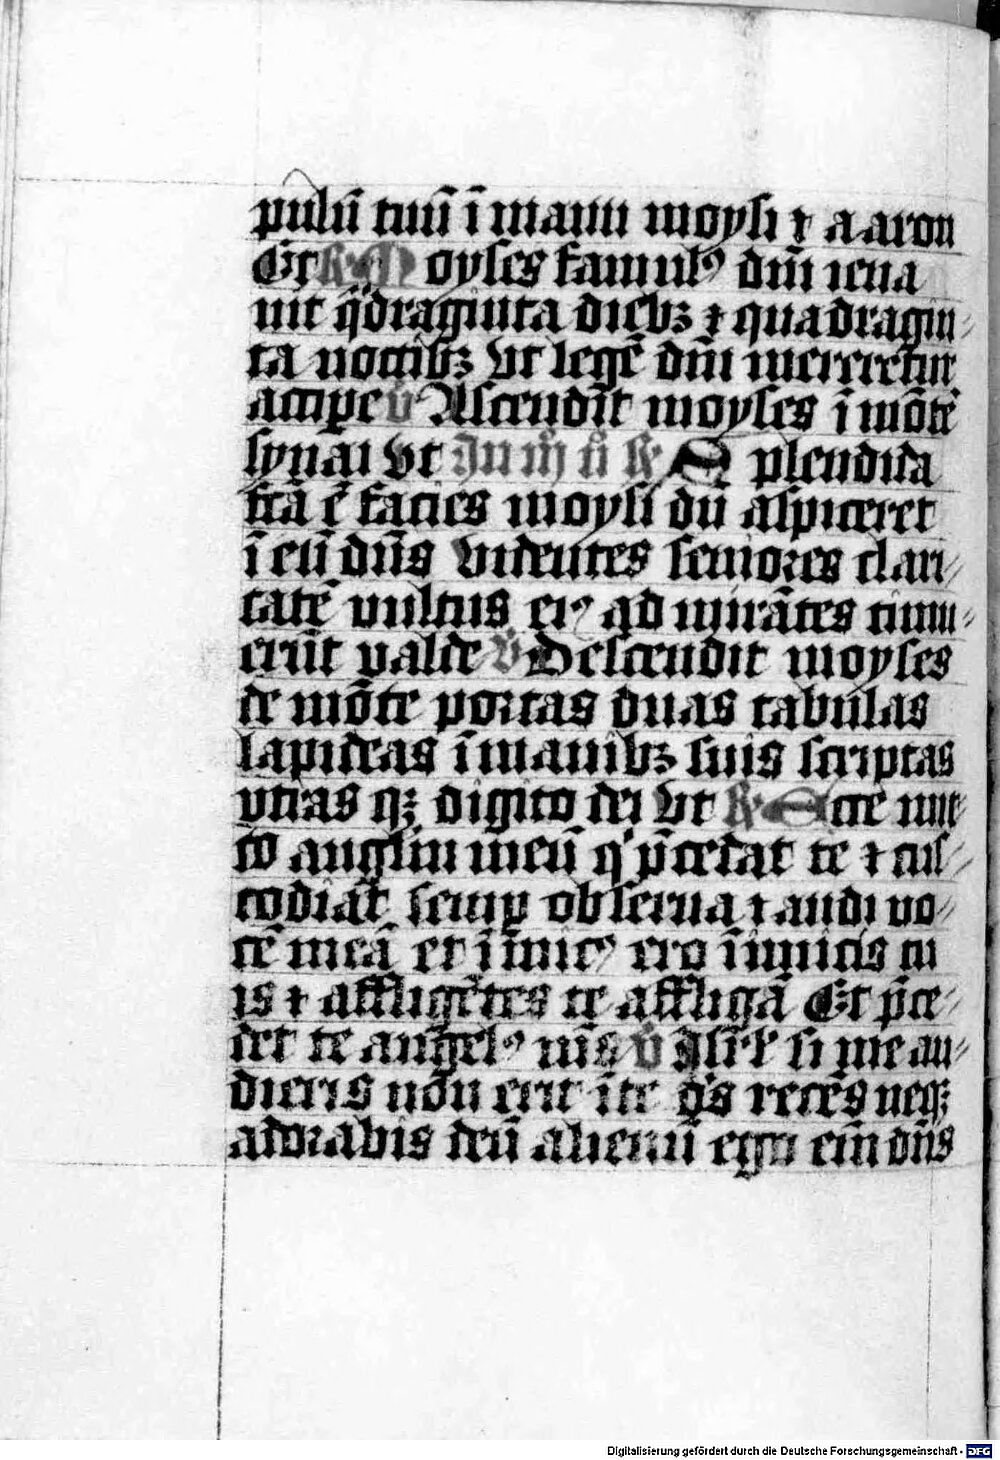 pulū tuū ī manu moysi ⁊ aaron
Et R Moyses famulꝰ dn̄i ieiua
uit q̈draginta diebꝫ ⁊ quadragin⸗
ta noctibꝫ Vt legē dn̄i mereretur
accipe v̄ Ascendn̄t moyses ī mōtē
synai Vt R Splendida
fcā ē facies moysi dū aspiceret
ī eū dn̄s Videntes seniores clari⸗
tatē vultus eiꝰ admirātes timu⸗
erūt valde V̄ Descendit moyses
de mōte portas duas tabulas
lapideas ī manibꝫ suis scriptas
vtras qꝫ digito dei Vt R Ecce mit⸗
to anglm̄ meū q' p̄cedat te ⁊ cus⸗
todiāt semꝑ obserua ⁊ audi vo⸗
cē meā et īimicꝰ ero īimicis tu
is ⁊ affligētes te affligā Et p̄ce⸗
det te angelꝰ mūs v̄ Isr̄l si me au⸗
dieris non erit ī te ds̄ recēs neqꝫ
adorabis deū alienū ego eīm dn̄s
Digitalisierung gefördert durch die Deutsche Forschungsgemeinschaft - DFG